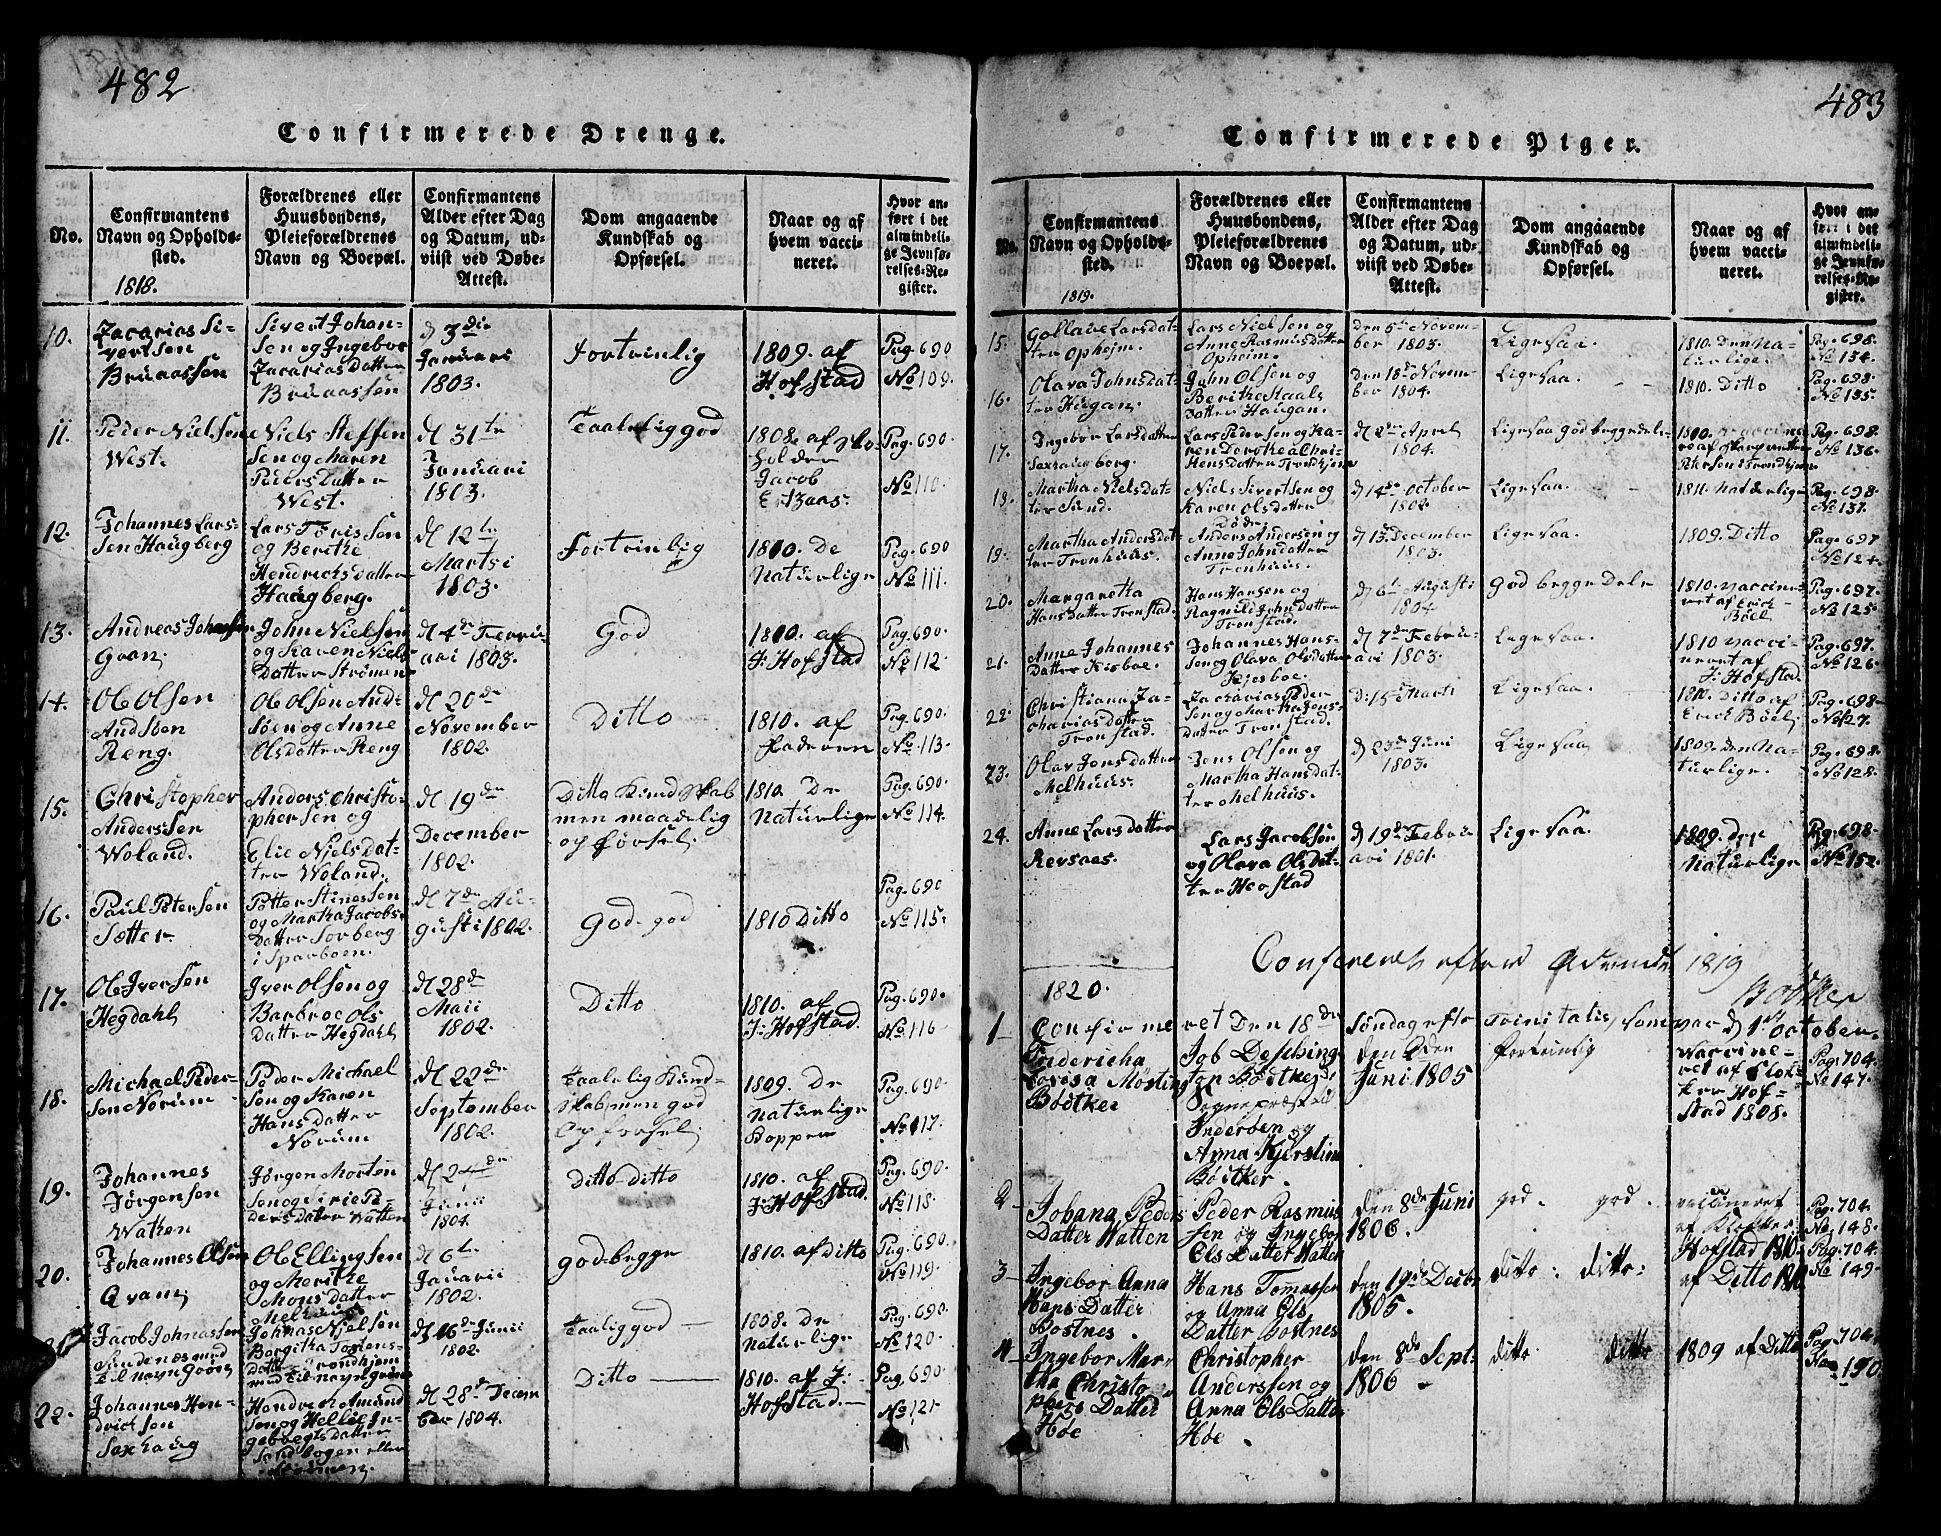 482
Confirmerede Drenge.
No.
Confirmantens
Navn og Opholds-
sted.
1818.
Forældrenes eller
Huusbondens,
Pleieforældrenes
Navn og Boepæl.
Confirmantens
Alder efter Dag
og Datum, ud-
viist ved Døbe-
Attest.
Dom angaaende
Kundskab og
Opførsel.
Naar og af
hvem vacci-
neret.
Hvor an-
ført i det
almindeli-
ge Jevnfø-
relses-Re-
gister.
10.
Zacarias Si-
vertsen
Bruaassen
Sivert Johan-
sen og Ingebor
Zacarias Datter
Bruaassen
d 3die
Januari
1803.
Fortrinlig
1809. af
Hofstad
Pag. 690
No 109.
11.
Peder Nielsen
West.
Niels Steffen
sen og Maren
Peders Datter
West.
d 31te
Januari
1803.
Taalelig god
1808. af
Jacob
Pag. 690.
No 110.
12.
Johannes Lars-
sen Haugberg
Lars
og Berithe
Hendricks datter
Haugberg.
d 12te
Martsi
1803.
Fortrinlig
1810. De
Naturlige
Pag. 690
No 111.
13.
Andreas Johansen
John Nielsen
og Karen Niels
Datter Strømen
d 4de Febru-
ari 1803.
God
1810. af
J: Hofstad
Pag. 690.
No 112.
14.
Ole Olsen
Andsøen
Reng.
Ole Olsen And-
søen og Anne
Olsdatter Reng
d 20de
November
1802.
Ditto
1810. af
Faderen
Pag. 690.
No 113.
15.
Christopher
Anderssen
Woland.
Anders Christo-
phersen og
Elie Niels dat-
ter Woland.
d 19de
December
1802.
Ditto Kundskab
men maadelig
opførsel.
1810. De
Naturlige
Pag. 690.
No 114.
16.
Paul Petersen
Sætter.
Petter Stinessen
og Martha Jacobs-
Datter Sorberg
i Sparboen.
d 7de Au-
gusti 1802.
God-god
1810 Ditto
Pag. 690
No 115.
17.
Ole Iversen
Hegdahl
Iver Olsen og
Barbroe Ols
datter Hegdahl
d 28de
Maii
1802.
Ditto
1810. af
J: Hofstad.
Pag. 690.
No 116
18.
Michael Peder-
sen Norum
Peder Michael
sen og Karen
Hans datter
Norum
d 22de
September
1802.
Taalelig Kund-
skab, men god
Opførsel,
1809. De
Naturlige
Kopper
Pag. 690.
No 117.
19.
Johannes
Jørgensen
Watten
Jørgen Morten
sen og Sirie Pe-
ders dater Watten
d 24de
Junii
1804.
ditto-ditto
1810. af
J: Hofstad.
Pag. 690.
No 118.
20.
Johannes Olsen
Qvam
Ole Ellingsen
og Merithe
Mons datter
Melhuus
d 6te
Januarii
1802.
god begge
1810. af ditto
Pag. 690.
No 119.
Jacob Johnassen
Sundnæs med
Tilnavn
Johnas Nielsen
Bergitha
datter Trondhjem
med Tilnavn
d 16de Junii
1802.
Taalig god
1808. De
Naturlige
Pag. 690.
No 120.
22.
Johannes Hen-
drichsen
Saxhaug
Hendrich Amund
sen og Hellie In-
geborgts datter
Sandbogen eller
Strømen.
d 28de Decem
ber 1804.
Ditto
1810. af J:
Hofstad.
Pag. 690.
No 121.
483
Confirmerede Piger.
No.
Confirmantens
Navn og Opholds-
sted.
1819.
Forældrenes eller
Huusbondens,
Pleieforældrenes
Navn og Boepæl.
Confirmantens
Alder efter Dag
og Datum, ud-
viist ved Døbe-
Attest.
Dom angaaende
Kundskab og
Opførsel.
Naar og af
hvem vacci-
neret.
Hvor an-
ført i det
almindeli-
ge Jevnfø-
relses-Re-
gister.
15.
Gollaue Larsdat-
ter Opheim.
Lars Nielsen og
Anne Rasmus Datter
Opheim.
den 5te Novem-
ber 1803.
Ligesaa.
1810. Den Na-
turlige.
Pag. 698.
No 134.
16.
Olava Johnsdat-
ter Hugan.
John Olsen og
Berithe Staals
datter Haugan.
den 18de Novem-
ber 1804.
Ligesaa.
1810. Ditto
Pag. 698.
No 135.
17.
Ingebor Larsdatter
Saxhaugberg.
Lars Pedersen og Ka-
ren Dorothea Chri-
stens datter Trondhjem
d 2den April
1804.
Ligesaa god begge dele
1810. Vaccine-
Petersen i Trondhjem
Pag. 698.
No 136.
18.
Martha Nielsdat-
ter Sund.
Niels Sivertsen og
Karen Olsdatter
d 14de October
1802.
Ligesaa.
1811. Naturlige
Pag. 698.
No 137.
19.
Martha Andersdat-
ter Tronhuus.
Anders Andersen og
Anne Johndatter
Tronhuus.
d 13 December
1803.
Ligesaa.
1809. Ditto
Pag. 697
No 124.
20.
Margaretta
Hansdatter Tronstad.
Hans Hansen og
Ragnild John datter
Tronstad.
d 6te Augusti
1804
God begge Dele
1810. Vaccine-
ret af Erick
Böel
Pag. 697.
No 125.
21.
Anne Johannes
Datter Kisboe.
Johannes Hans-
sen og Olava Olsdatter
Kjesboe.
d 7de Febru-
ari 1803.
Ligesaa.
1810 Vacci-
neret af
J: Hofstad
Pag. 697.
No 126.
22.
Christiana Za-
charias datter
Tronstad.
Zacharias Peder
sen og Martha Jens-
datter Tronstad.
d: 15 Marti
Ligesaa.
1810. Ditto af
Erick Böel,
Pag. 698
No 127.
23.
Olav Jensdatter
Melhuus.
Jens Olsen og
Martha Hansdat-
ter Melhuus.
d 23de Juni
1803.
Ligesaa
1809. Den Na-
turlige.
Pag. 698.
No 128.
24.
Anne Larsdatter
Revsaas.
Lars Jacobsen
og Olava Olsdat-
ter Hofstad
d 19de Febru
ari 1801.
Ligesaa.
1809. Den
Naturlige
Pag. 698.
No 152.
1819
Bödtker
1820.
1
Confirmeret Den 18de Søndag efter Trinitatis, som var d 1ste October.
Fridericha
Lovisa Møsting
Bödtker
Job Desching-
ton Bödtker,
Sognepræst til
Inderøen og
Anna Kjerstine
Bödtker.
den 2den
Juni 1805
fortrinlig
Vaccine-
ret af Klok-
ker Hof-
stad 1808.
Pag. 704.
No 147.
2
Johana Peders
Datter Watten
Peder Rasmus
sen og Ingebor
Ols Datter Watten
den 8de Juni
1806.
god. god.
vaccineret
af Klokker
Hofstad 1810
Pag. 704.
No 148.
3
Ingebor Anna
Hans Datter
Bostnes.
Hans Tomassen
og Anna Ols
Datter Bostnes
den 19de Decbr
1805.
ditto: ditto:
af Ditto 1810
Pag. 704.
No 149.
4
Ingebor Mar
tha Christo
phers Datter
Høe
Christopher
Anderssen og
Anna Ols Datter
Høe.
den 8de Sept
1806
ditto ditto
1809 af Ditto
Pag. 704.
No 150